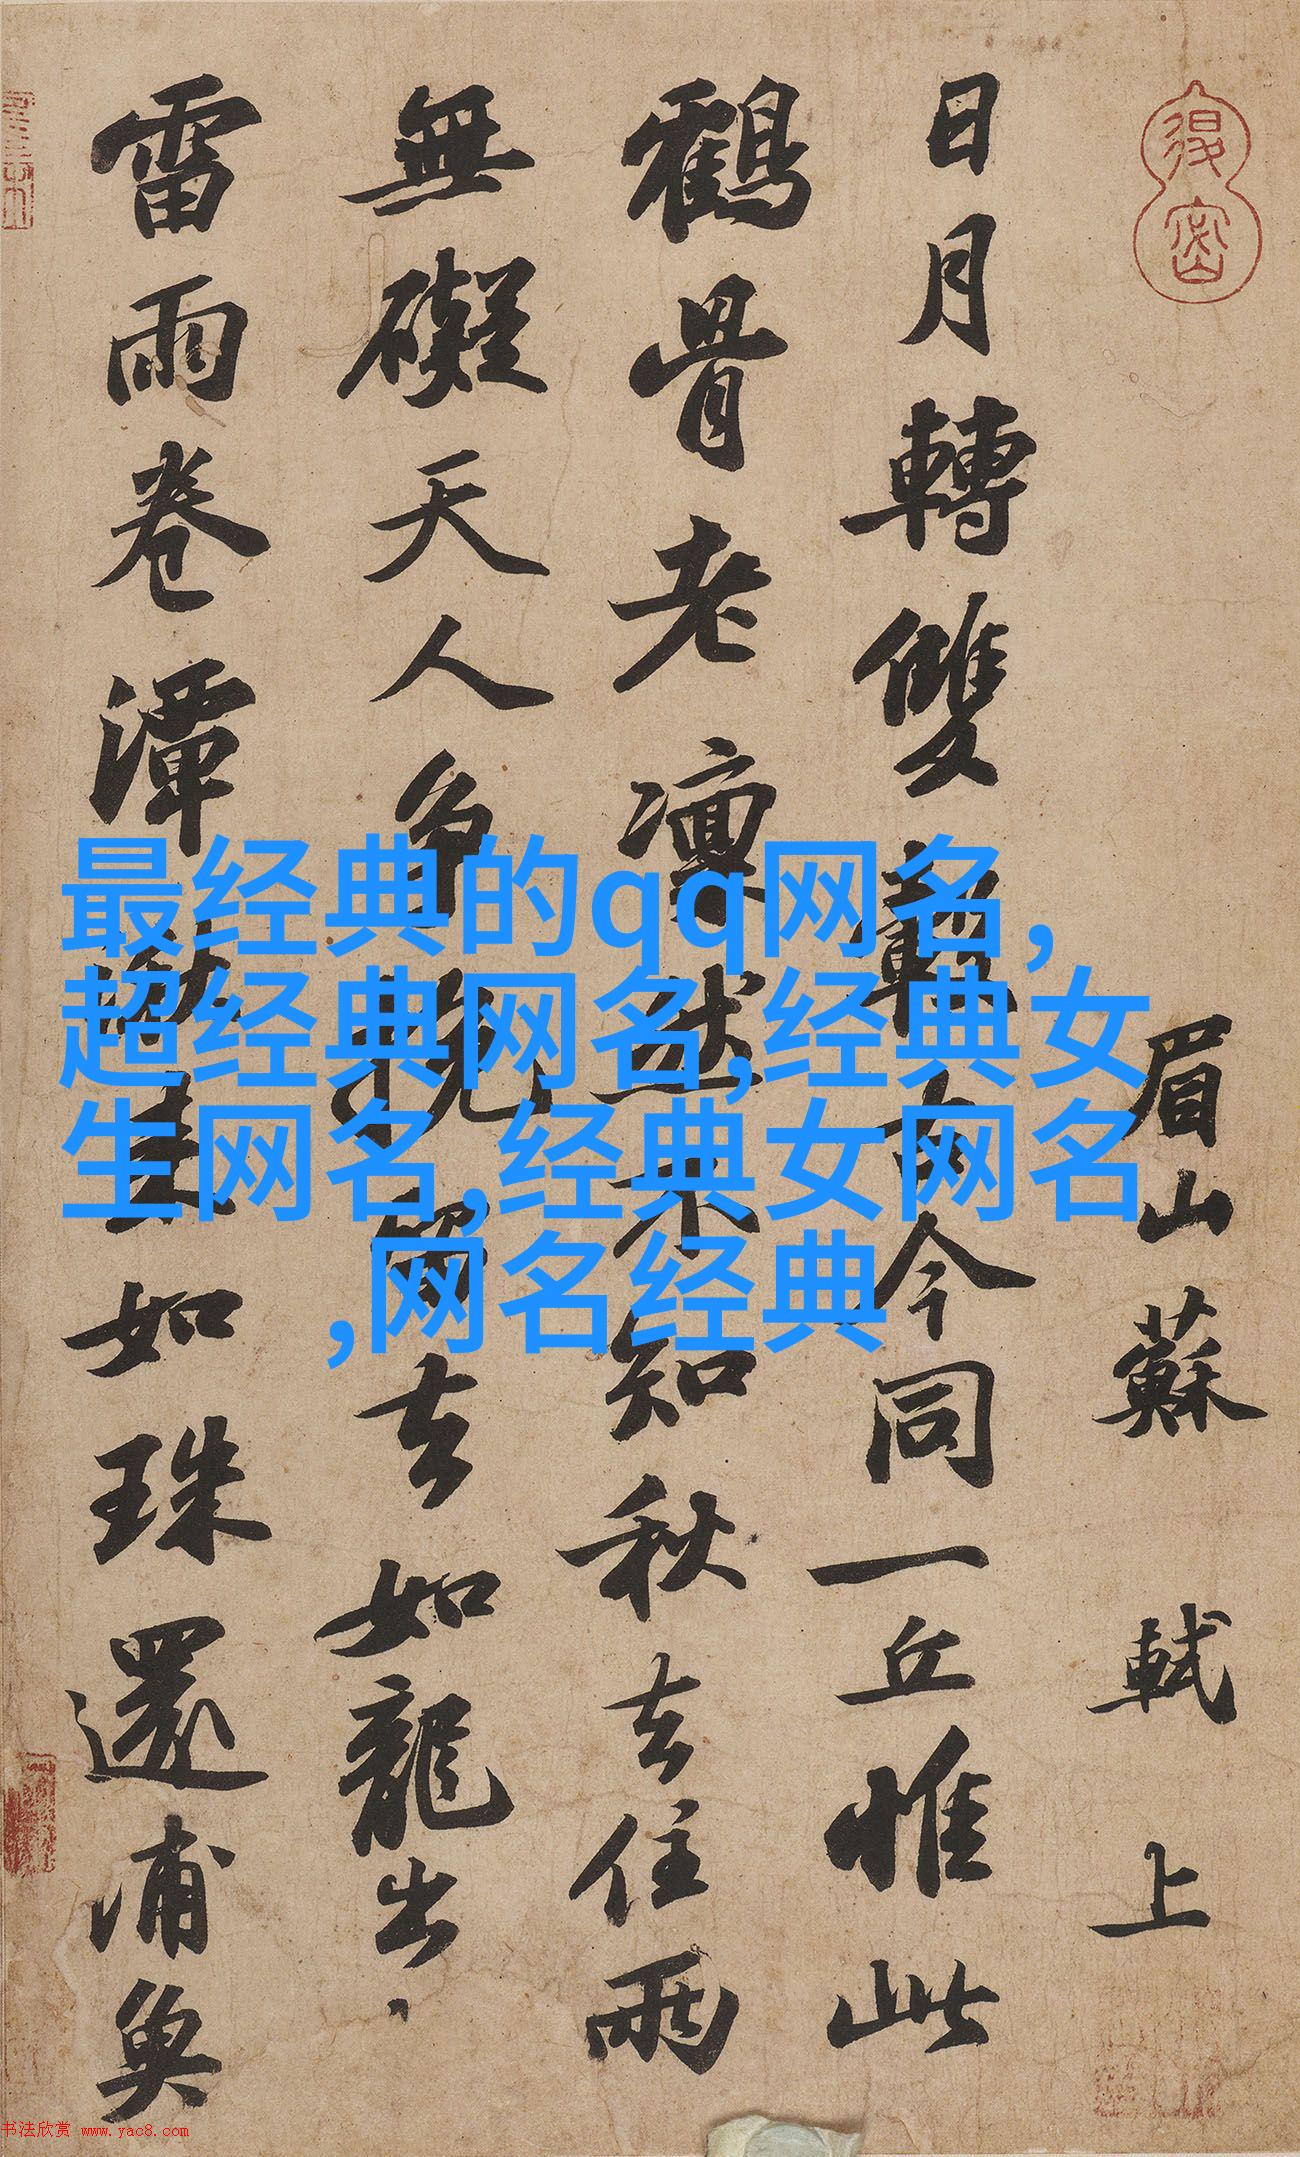 眉山蘇軾上
日月轉雙轂古今同一丘惟此
鶴骨老凜然不知秋去住兩
無礙天人爭挽留去如龍出
雷雨卷潭湫來如珠還浦魚
最经典的qq网名,
超经典网名,经典女
生网名,经典女网名
,网名经典
书法欣赏 www.yac8.com